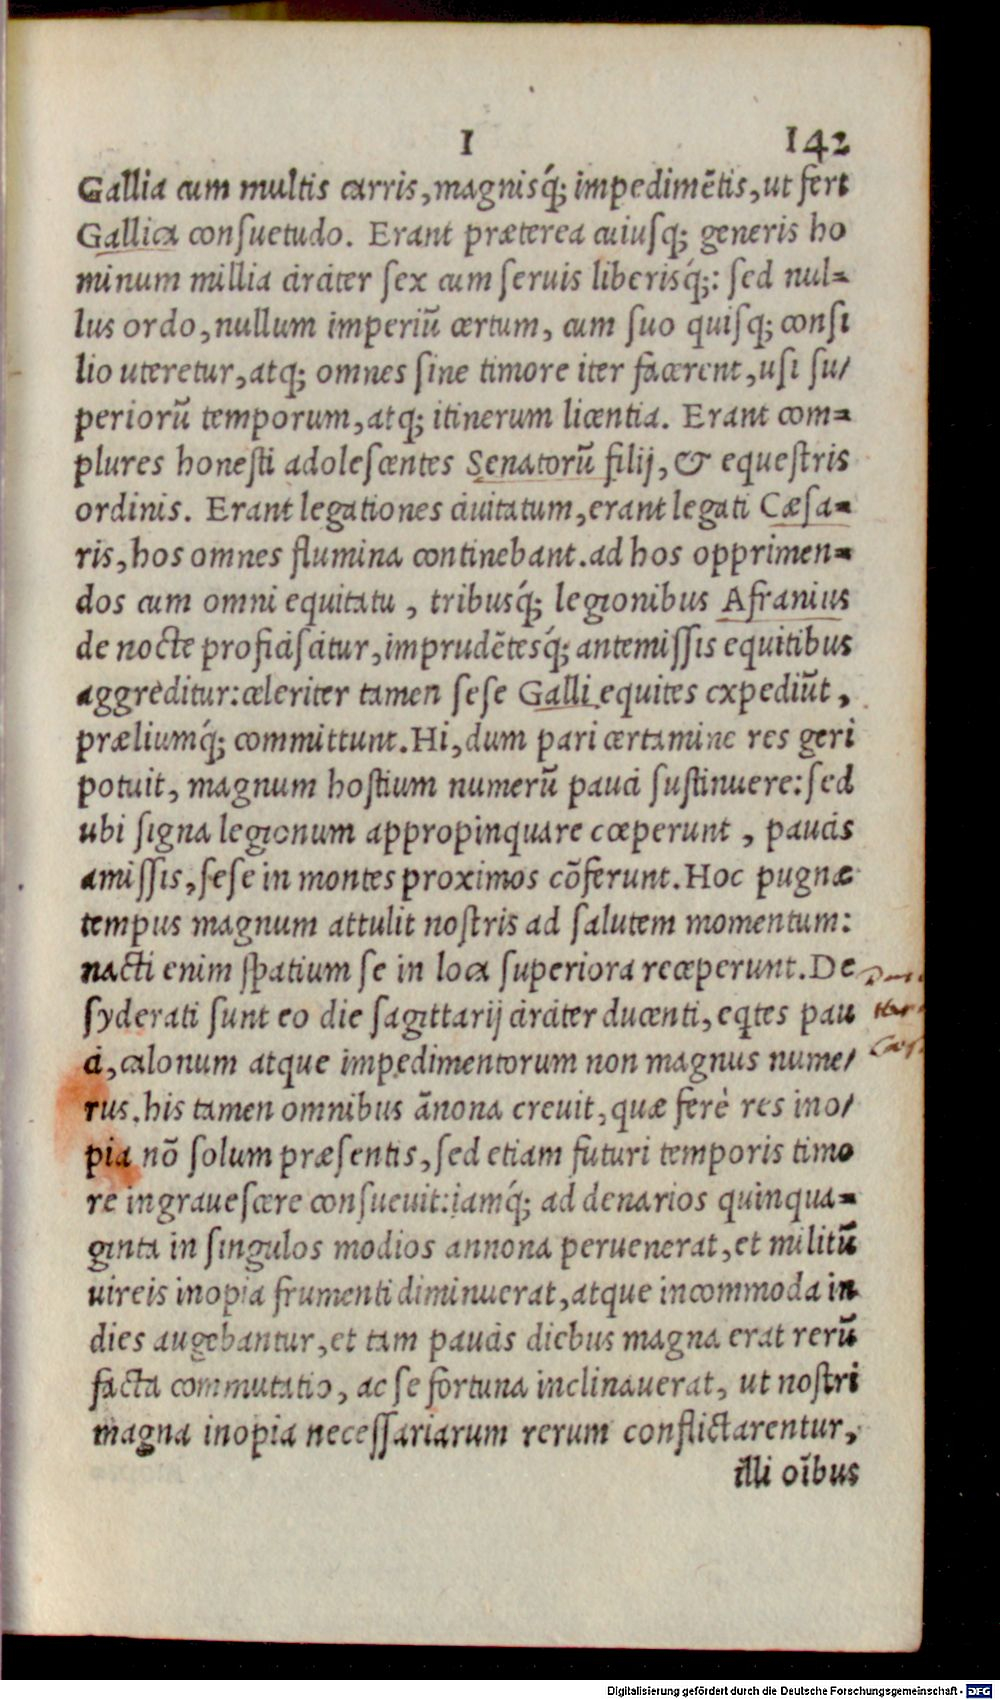 I 142
Gallia cum multis carris, magnisq́; impedimẽtis, ut fert
Gallica consuetudo. Erant præterea cuiusq; generis ho
minum millia circiter sex cum seruis liberisq́;: sed nul=
lus ordo, nullum imperiũ certum, cum suo quisq; consi
lio uteretur, atq; omnes sine timore iter facerent, usi su/
periorũ temporum, atq; itinerum licentia. Erant com=
plures honesti adolescentes Senatorũ filij, & equestris
ordinis. Erant legationes ciuitatum, erant legati Cæsa=
ris, hos omnes flumina continebant. ad hos opprimen=
dos cum omni equitatu, tribusq́; legionibus Afranius
de nocte proficiscitur, imprudẽtesq́; antemissis equitibus
aggreditur: celeriter tamen sese Galli equites expediũt,
præliumq́; committunt. Hi, dum pari certamine res geri
potuit, magnum hostium numerũ pauci sustinuere: sed
ubi signa legionum appropinquare cœperunt, paucis
amissis, sese in montes proximos cõferunt. Hoc pugnæ
tempus magnum attulit nostris ad salutem momentum:
nacti enim spatium se in loca superiora receperunt. De
syderati sunt eo die sagittarij circiter ducenti, eqtes pau
ci, calonum atque impedimentorum non magnus nume/
rus. his tamen omnibus ãnona creuit, quæ ferè res ino/
pia nõ solum præsentis, sed etiam futuri temporis timo
re ingrauescere consueuit: iamq́; ad denarios quinqua=
ginta in singulos modios annona peruenerat, et militũ
uireis inopia frumenti diminuerat, atque incommoda in
dies augebantur, et tam paucis diebus magna erat rerũ
facta commutatio, ac se fortuna inclinauerat, ut nostri
magna inopia necessariarum rerum conflictarentur,
illi oĩbus
Digitalisierung gefördert durch die Deutsche Forschungsgemeinschaft - DFG